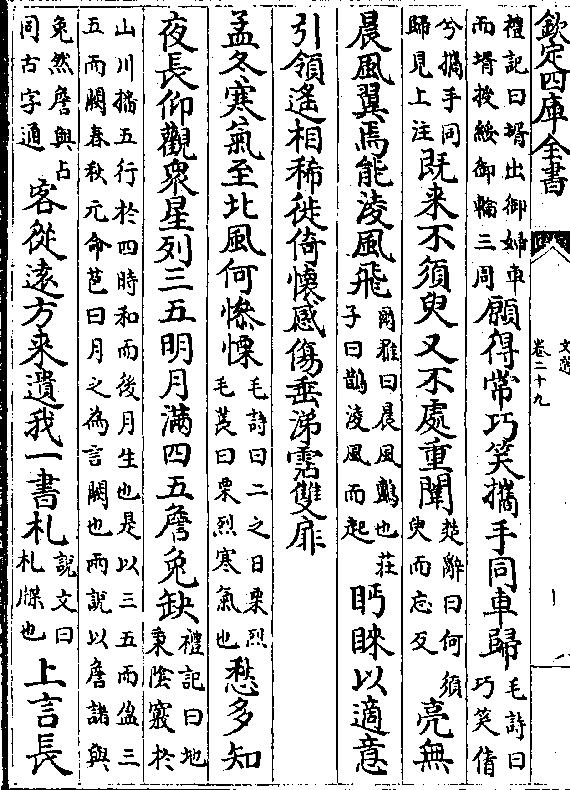 欽定四庫全書
文選
卷二十九
禮記曰壻出御婦車
而壻授綏御輪三周
願得常巧笑攜手同車歸
毛詩曰
巧笑倩
兮攜手同
歸見上注
既来不須臾又不處重闈
楚辭曰何須
臾而忘反
亮無
晨風翼焉能淩風飛
爾雅曰晨風鸇也莊
子曰鵲淩風而起
眄睞以適意
引領遙相稀徙倚懷感傷垂涕霑雙扉
孟冬寒氣至北風何慘慄
毛詩曰二之日栗烈
毛萇曰栗烈寒氣也
愁多知
夜長仰觀衆星列三五明月滿四五詹兔缺
禮記曰地
秉陰竅於
山川播五行於四時和而後月生也是以三五而盈三
五而闕春秋元命苞曰月之為言闕也兩說以詹諸與
兔然詹與占
同古字通
客從遠方来遺我一書札
說文曰
札牒也
上言長